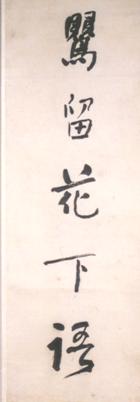 鶯留花下語